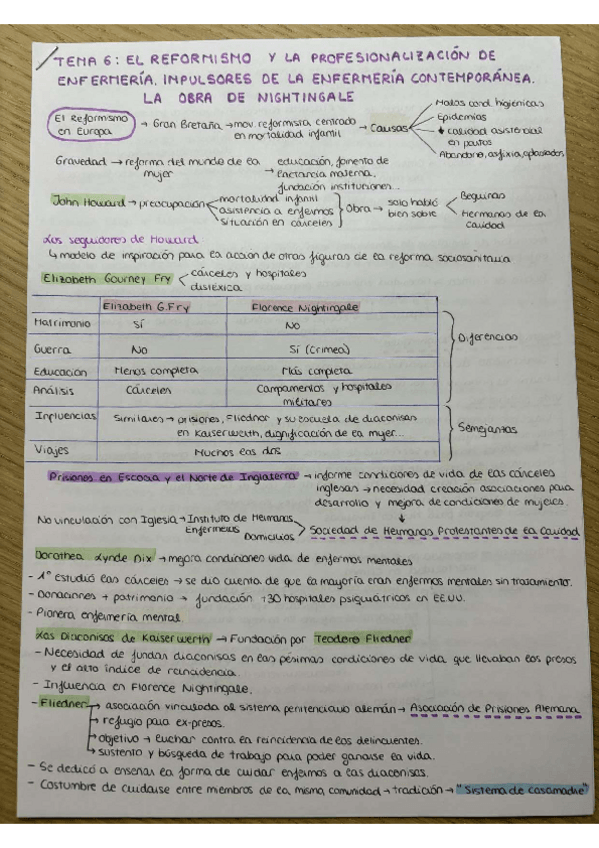 TEMA 6: EL REFORMISMO Y LA PROFESIONALIZACIÓN DE
ENFERMERÍA. IMPULSORES DE LA ENFERMERÍA CONTEMPORÁNEA.
LA OBRA DE NIGHTINGALE
El Reformismo en Europa → Gran Bretaña → mov. reformista centrado en mortalidad infantil → Causas
Malas cond. higiénicas
Epidemias
↓ calidad asistencial en partos
Abandono, asfixia, aplastados
Gravedad → reforma del mundo de la mujer → educación, fomento de lactancia materna, fundación instituciones...
John Howard → preocupación
mortalidad infantil
asistencia a enfermos
situación en cárceles
Obra → solo habló bien sobre
Beguinas
Hermanas de la Caridad
Los seguidores de Howard
↳ modelo de inspiración para la acción de otras figuras de la reforma sociosanitaria
Elizabeth Gourney Fry
cárceles y hospitales
disléxica
Elizabeth G. Fry Florence Nightingale
Matrimonio Sí No
Guerra No Sí (Crimea)
Educación Menos completa Más completa
Análisis Cárceles Campamentos y hospitales militares
Diferencias
Influencias Similares → prisiones, Fliedner y su escuela de diaconisas
en Kaiserwerth, dignificación de la mujer...
Viajes Muchos las dos
Semejantes
Prisiones en Escocia y el Norte de Inglaterra → informe condiciones de vida de las cárceles
inglesas → necesidad creación asociaciones para
desarrollo y mejora de condiciones de mujeres.
No vinculación con Iglesia → Instituto de Hermanas Enfermeras
Domicilios
Sociedad de Hermanas Protestantes de la Caridad
Dorothea Lynde Dix → mejora condiciones vida de enfermos mentales
- 1º estudió las cárceles → se dio cuenta de que la mayoría eran enfermos mentales sin tratamiento.
- Donaciones + patrimonio → fundación +30 hospitales psiquiátricos en EEUU.
- Pionera enfermería mental.
Las Diaconisas de Kaiserwerth → Fundación por Teodoro Fliedner
- Necesidad de fundar diaconisas en las pésimas condiciones de vida que llevaban los presos
y el alto índice de reincidencia.
- Influencia en Florence Nightingale.
- Fliedner → asociación vinculada al sistema penitenciario alemán → Asociación de Prisiones Alemana
→ refugio para ex-presos.
→ objetivo → luchar contra la reincidencia de los delincuentes.
→ sustento y búsqueda de trabajo para poder ganarse la vida.
- Se dedicó a enseñar la forma de cuidar enfermos a las diaconisas.
- Costumbre de cuidarse entre miembros de la misma comunidad → tradición → "Sistema de casamadre"